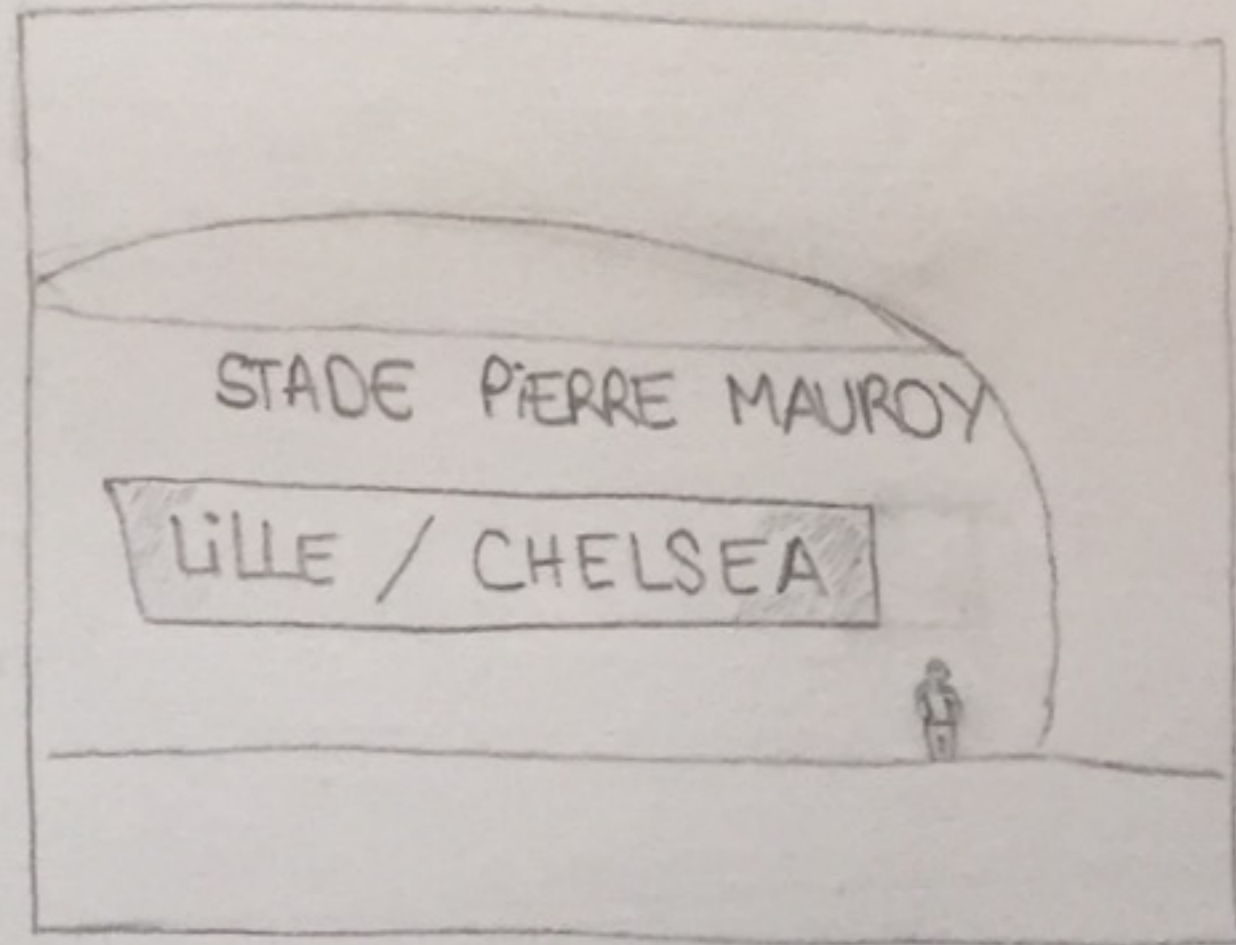 STADE PiERRE MAUROY
LiLLE / CHELSEA